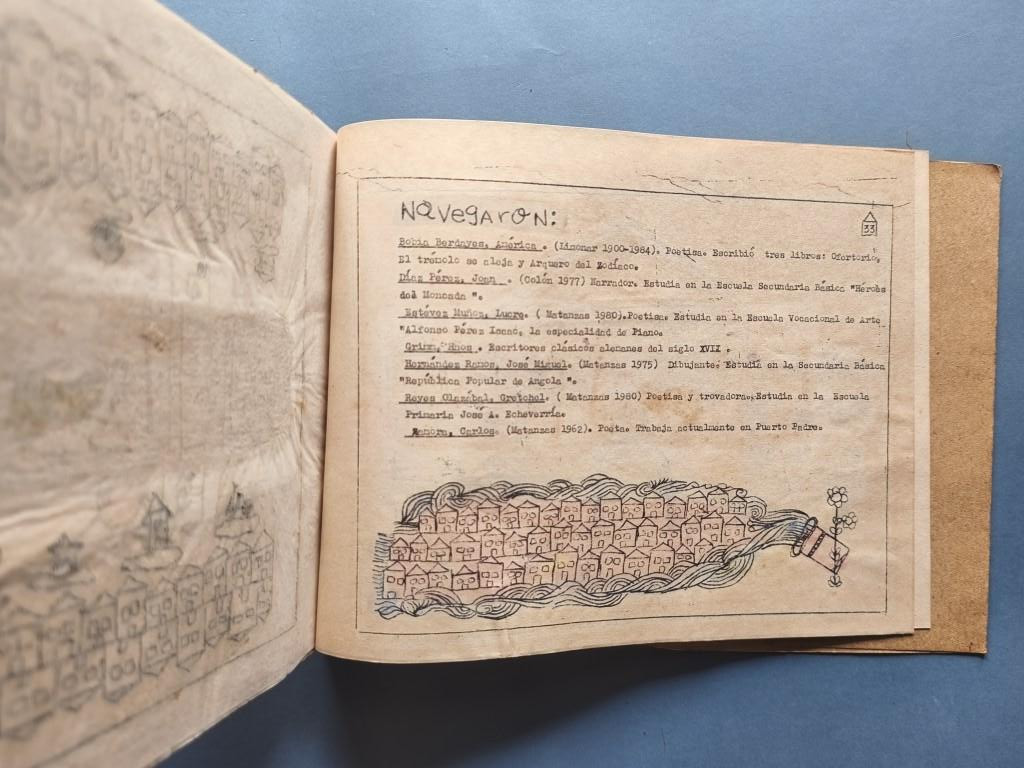 Navegaron:
33
Bobia Berdayes, América . (Limonar 1900-1984). Poetisa. Escribió tres libros: Ofertorio,
El tremolo se aleja y Arquero del Zodíaco.
Díaz Pérez, Joan . (Colón 1977) Narrador. Estudia en la Escuela Secundaria Básica "Héroes
del Moncada ".
Estévez Muñoz, Lucre. ( Matanzas 1980).Poetisa. Estudia en la Escuela Vocacional de Arte
"Alfonso Pérez Isaac, la especialidad de Piano.
Grimm, Hnos . Escritores clásicos alemanes del siglo XVII .
Hernández Ramos, José Miguel. (Matanzas 1975) Dibujante. Estudia en la Secundaria Básica
"República Popular de Angola ".
Reyes Olazábal, Gretchel. ( Matanzas 1980) Poetisa y trovadora. Estudia en la Escuela
Primaria José A. Echeverría.
Zamora, Carlos. (Matanzas 1962). Poeta. Trabaja actualmente en Puerto Padre.